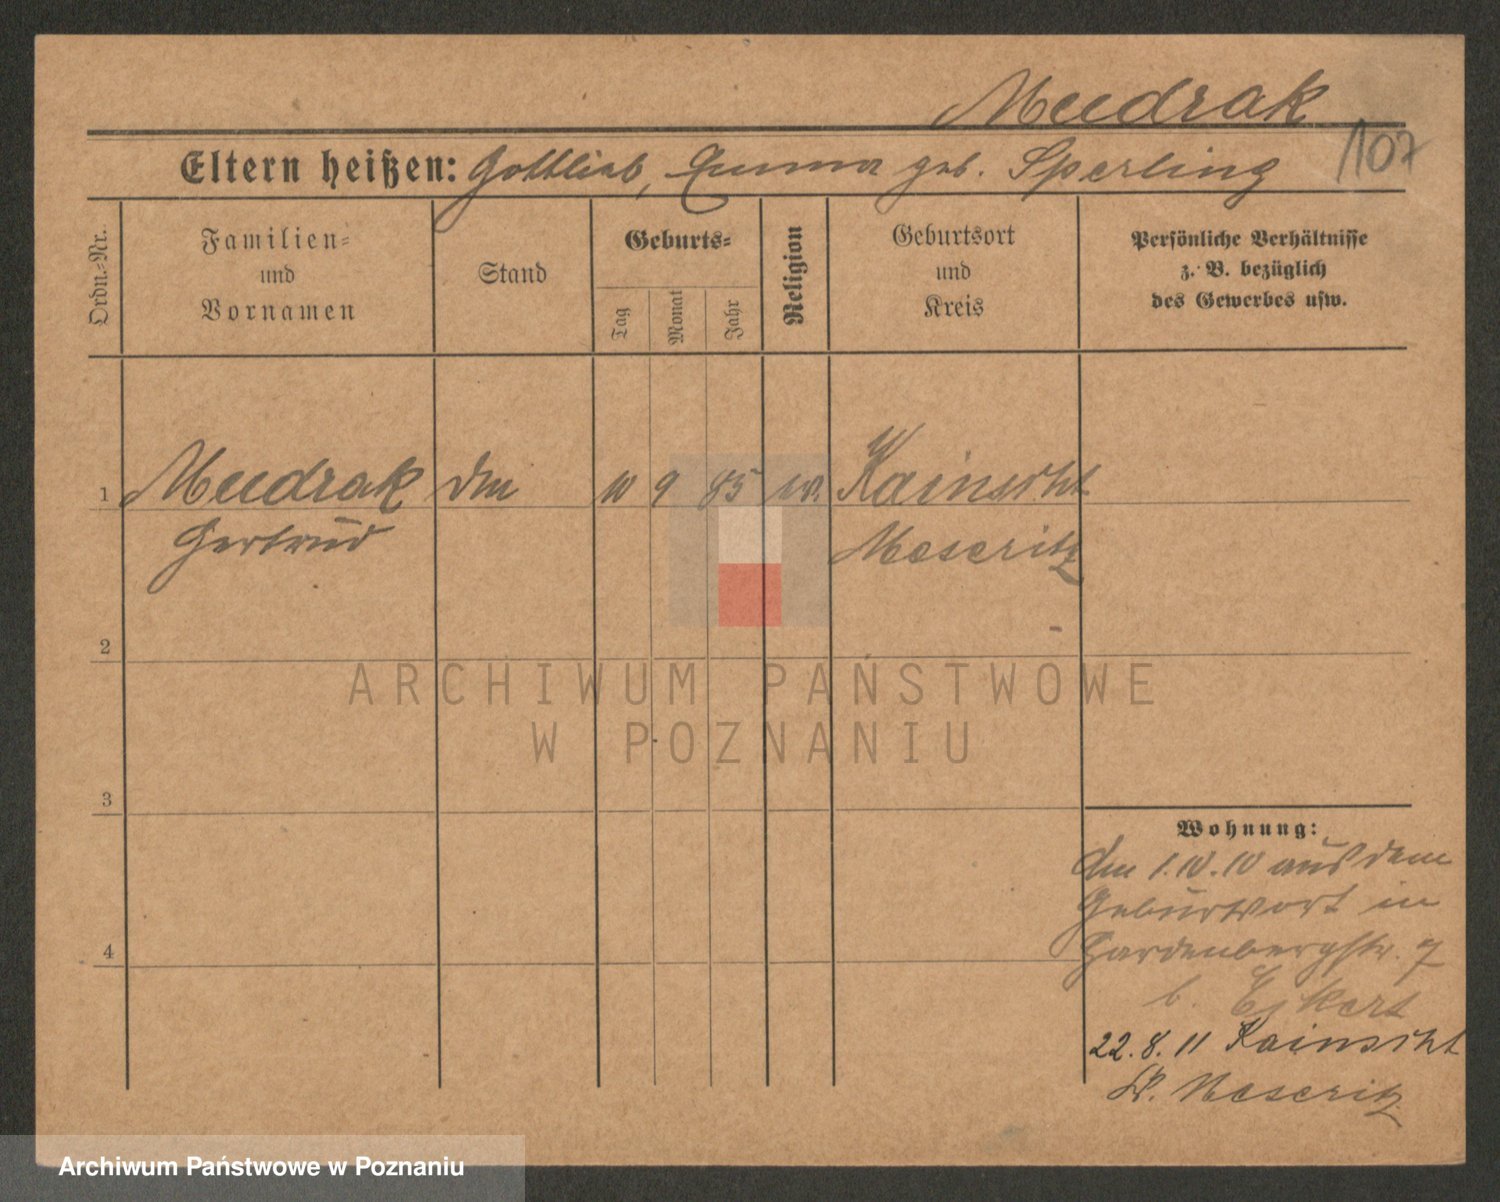 Meedrak
107
Eltern heißen: Gottlieb, Emma geb. Sperling
Ordn.-Nr.
Familien-
und
Vornamen
Stand
Geburts-
Tag
Monat
Jahr
Religion
Geburtsort
und
Kreis
Persönliche Verhältnisse
z. B. bezüglich
des Gewerbes usw.
1 Meedrak 10 9 85 ev. Kainscht
Gertrud Meseritz
2
ARCHIWUM PAŃSTWOWE
W POZNANIU
3
Wohnung:
1.10.10 aus dem
Geburtsort in
Hardenbergstr. 7
b. Eckert
4
22.8.11 Kainscht
Kr. Meseritz
Archiwum Państwowe w Poznaniu